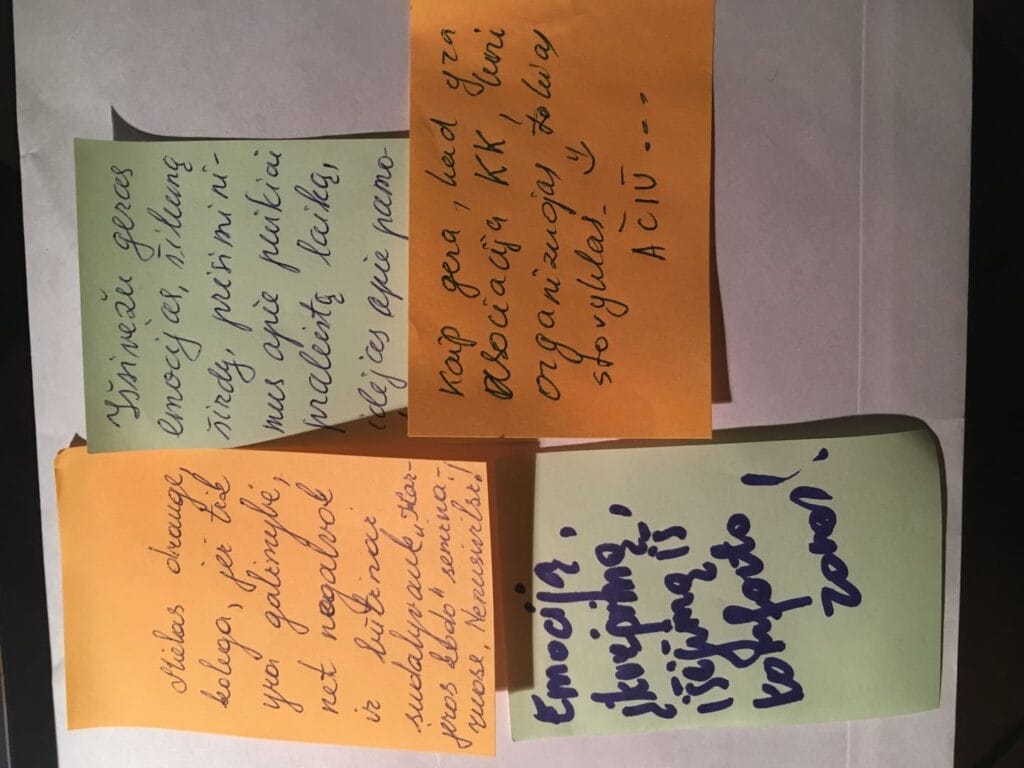 Išsivežu geras
emocijas, šilumą
širdy, prisimini-
mus apie puikiai
praleistą laiką,
idėjas apie pamo
Kaip gera, kad yra
asociacija KK, kuri
organizuojas tokias
stovyklas
AČIŪ...
Mielas drauge
kolega, jei tik
yra galimybė,
net negalvok
ir būtinai
sudalyvauk „Kar-
jeros kodo" semina-
ruose. Nenusivilsi!
Emociją,
įkvėpimą,
išėjimą iš
komforto
zonos!